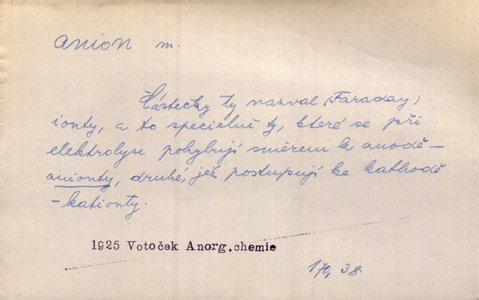 anion m.
Částečky ty nazval (Faraday)
ionty, a to specielně ty, které se při
elektrolyse pohybují směrem k anodě –
anionty, druhé, jež postupují ke kathodě
– kationty.
1925 Votoček Anorg.chemie
38.